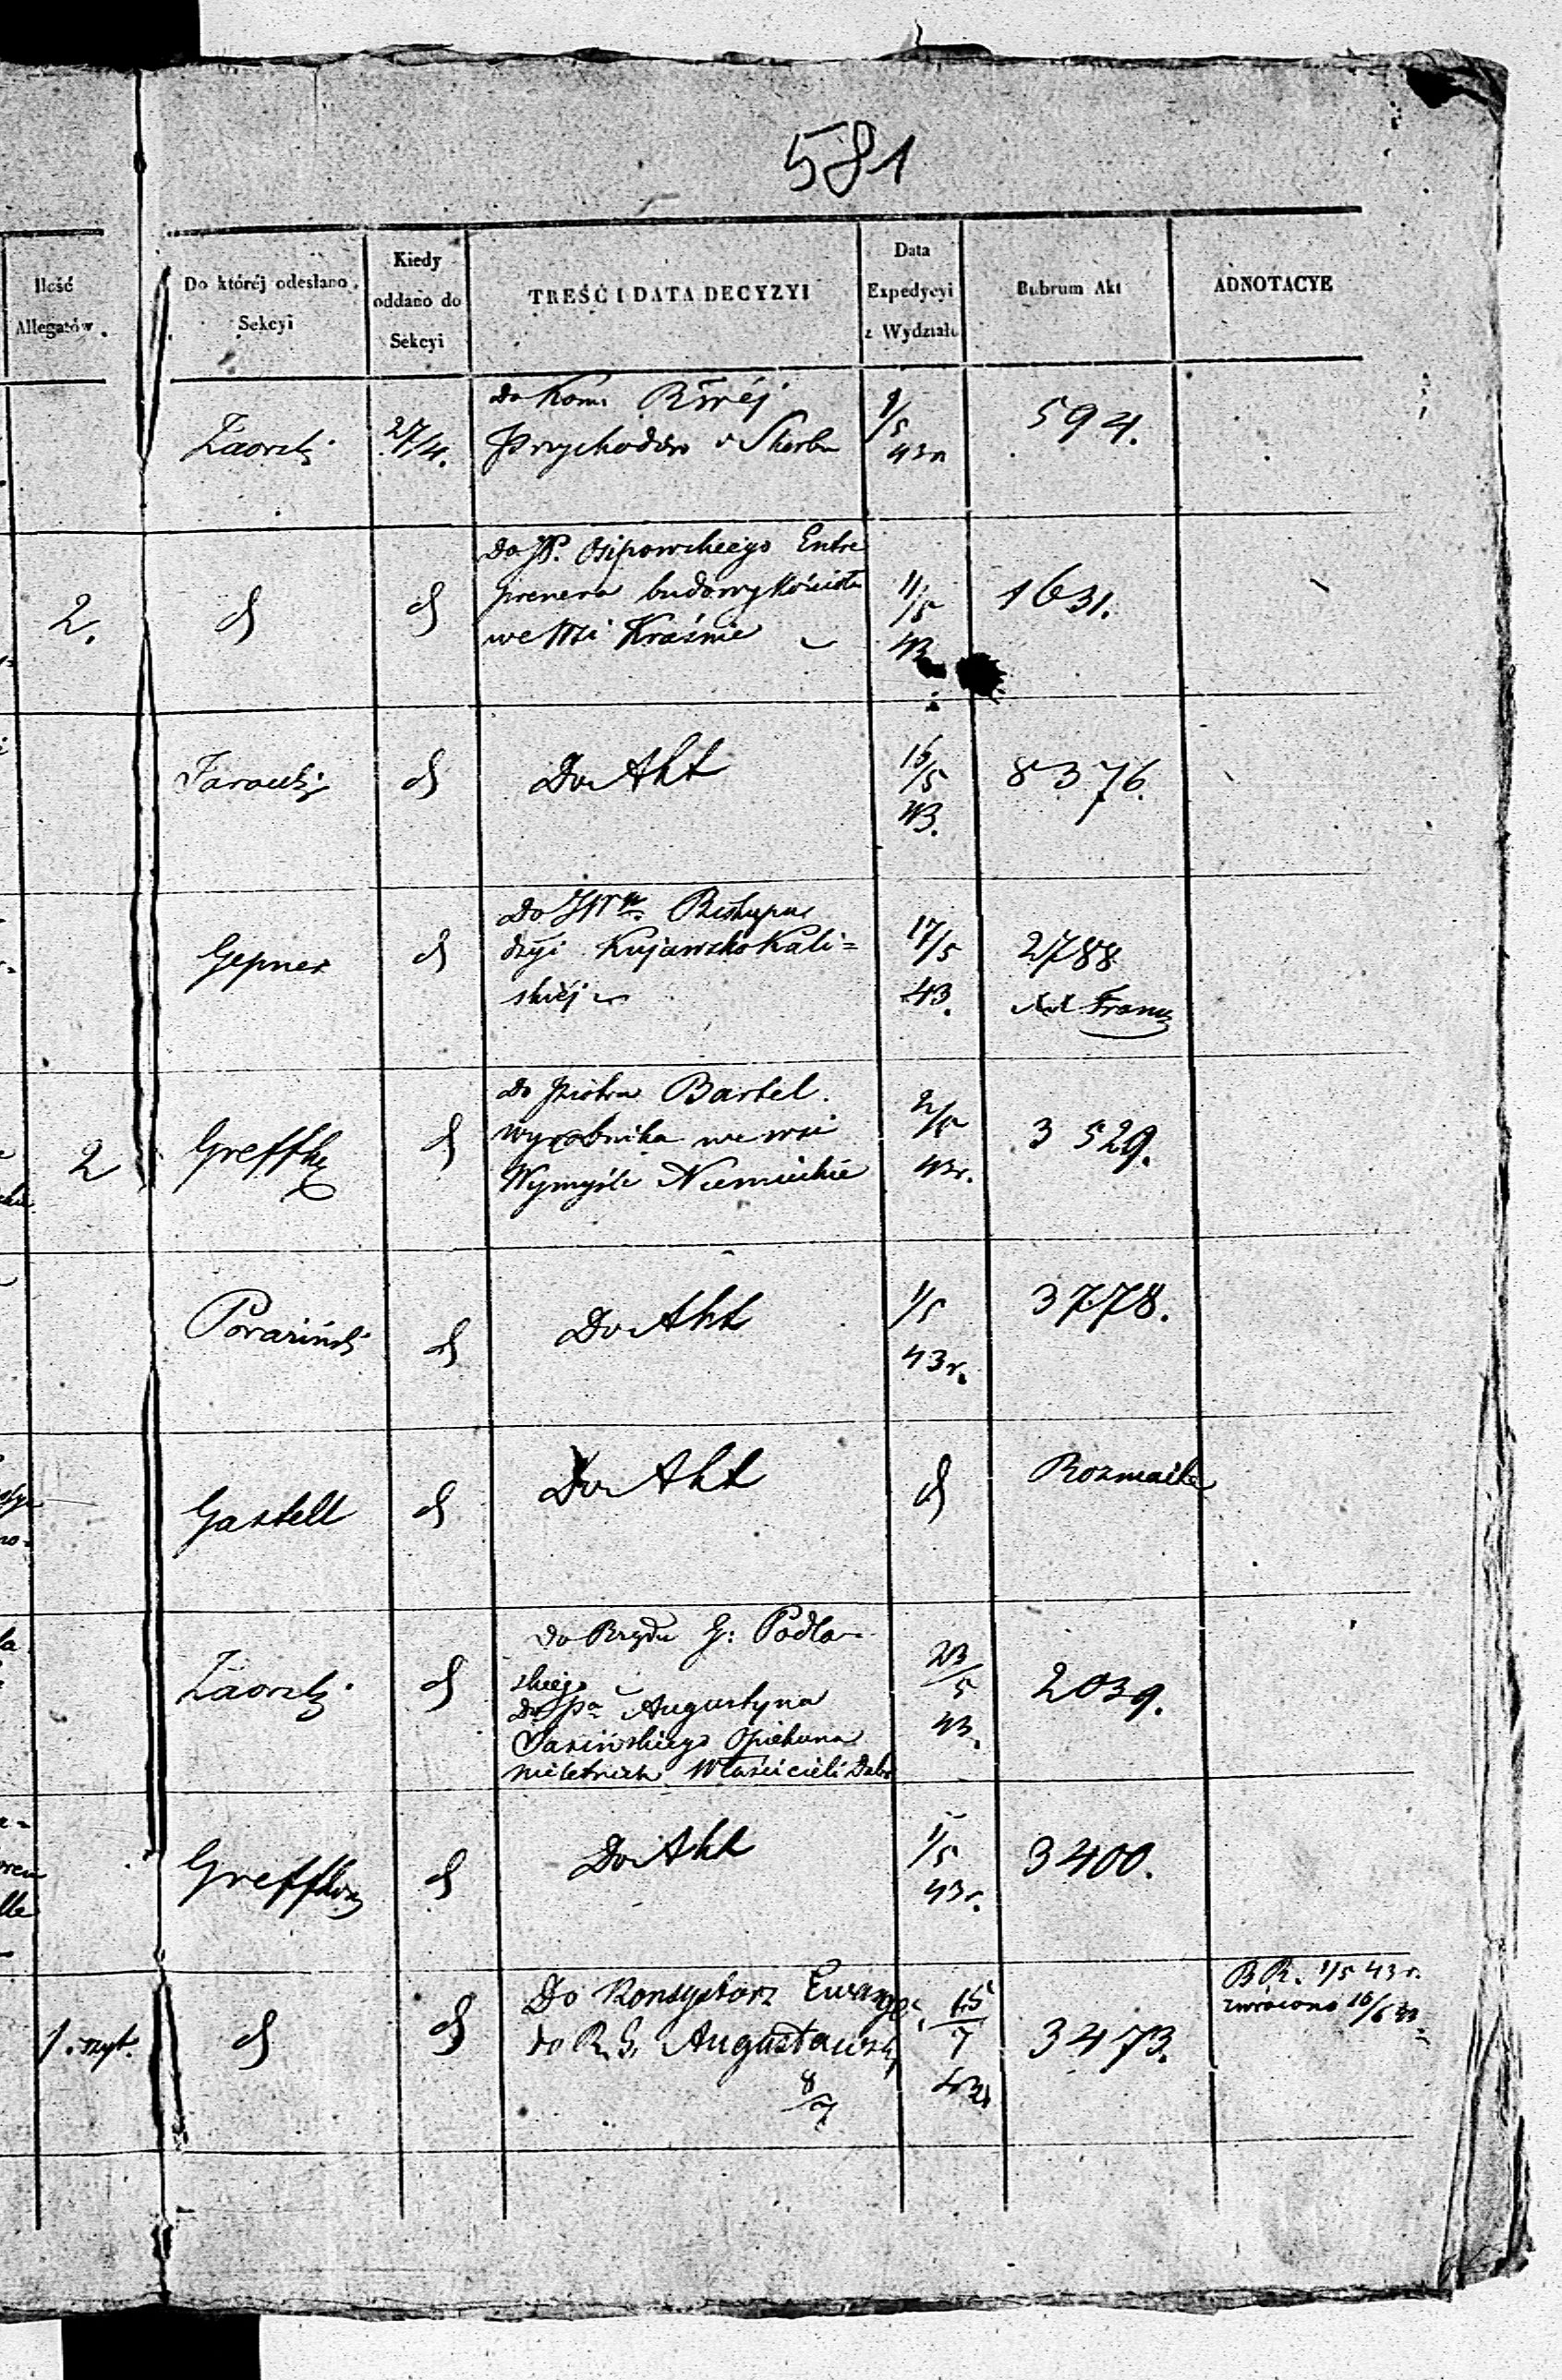 581
Ilość Allegatów.
Do któréj odesłano Sekcyi
Kiedy oddano do Sekcyi
TREŚĆ I DATA DECYZYI
Data Expedycyi z Wydziału
Rubrum Akt
ADNOTACYE
27/4.
do Kom. Rz̃wéj
Przychodów i Skarbu
9/5
43r
594.
2.
d
d
do JP. Osipowskiego Entre
prenera budowy kościoła
we Wsi Kraśnie
11/5
43
1631.
d
Do Akt
16/5
43.
8376.
Gepner
d
Do JWgo Biskupa
dyi Kujawsko Kali=
skiéj
17/5
43.
2788
2
Greffke
d
do Piotra Bartel.
wyrobnika we wsi
Wymyśle Niemieckie
2/5
43r.
3529.
Poraziński
d
Do Akt
1/5
43r.
3778.
Gastell
d
Do Akt
d
Rozmaite
d
do Rządu G: Podla-
skiego
do Pa Augustyna
Jasińskiego Opiekuna
nieletnich Właścicieli Dabr
23/5
43.
2039.
d
Do Akt
1/5
43r.
3400.
1. szyt.
d
d
Do Konsystorz Ewang:
do R. G. Augustowsk
8/7
15/7
43r
3473.
B R. 1/5 43r.
zwrócono 16/6 43